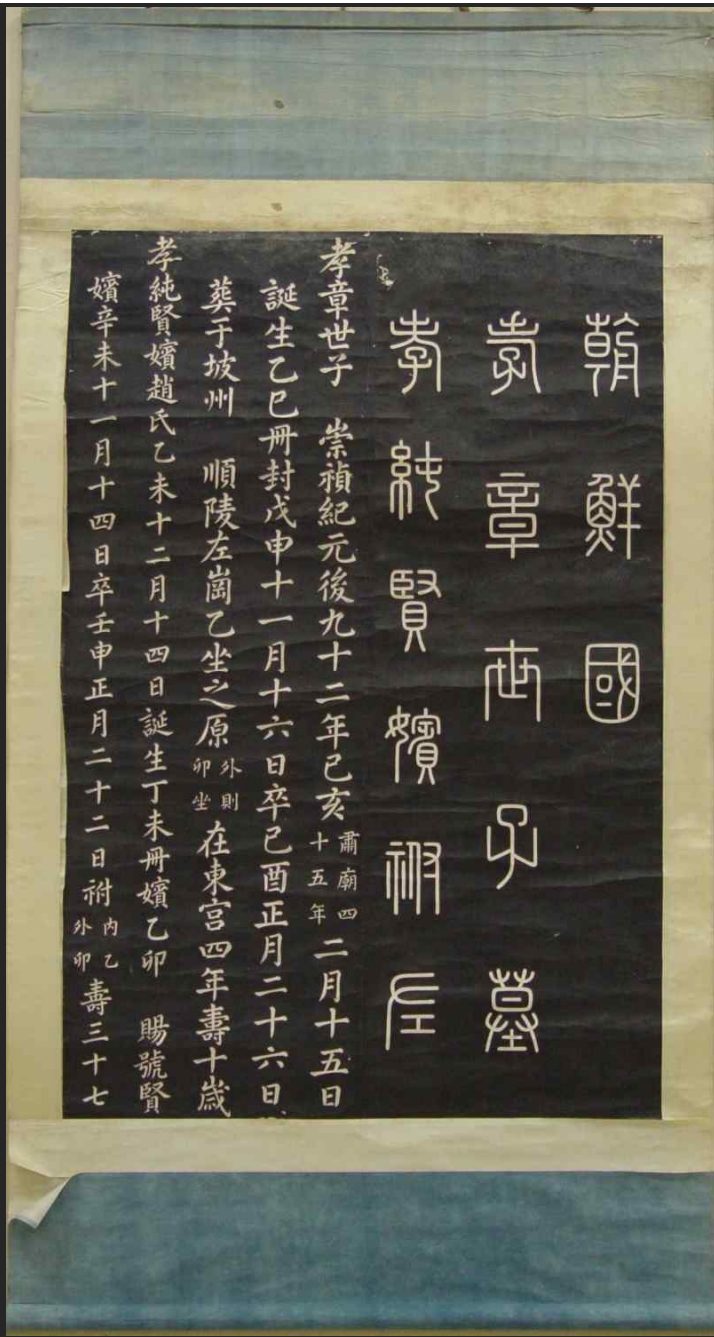 朝鮮國
孝章世子墓
孝純賢嬪祔左
孝章世子 崇禎紀元後九十二年己亥肅廟四十五年二月十五日
誕生乙巳冊封戊申十一月十六日卒己酉正月二十六日
葬于坡州 順陵左崗乙坐之原外則卯坐在東宮四年壽十歲
孝純賢嬪趙氏乙未十二月十四日誕生丁未冊嬪乙卯 賜號賢
嬪辛未十一月十四日卒壬申正月二十二日祔內乙外卯壽三十七